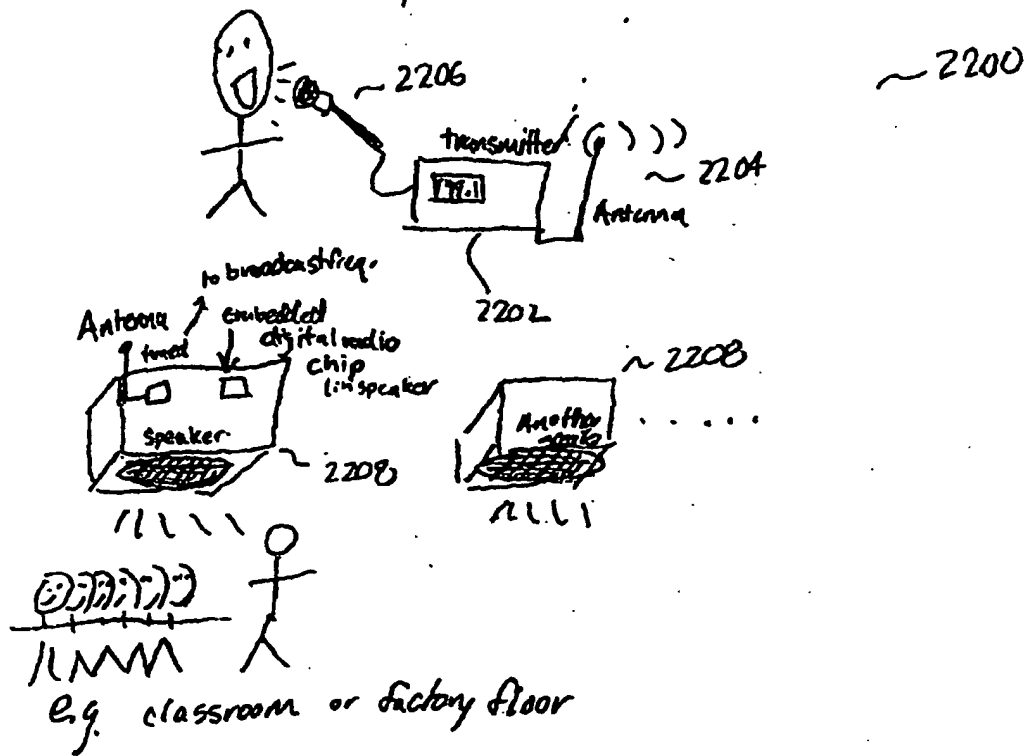 2200
2206
transmitter
2204
99.1
Antenna
2202
to broadcast freq.
Antenna
tuned
embedded
digital radio
chip
in speaker
speaker
2208
2208
Another
e.g. classroom or factory floor